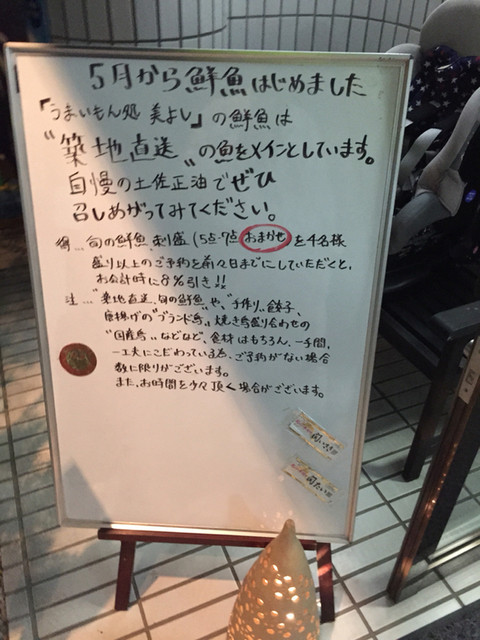 5月から鮮魚はじめました
「うまいもん処 美よし」の鮮魚は
"築地直送"の魚をメインとしています。
自慢の土佐正油でぜひ
召しあがってみてください。
得…旬の鮮魚 刺盛(5点-7点 おまかせ を4名様
盛り以上のご予約を前々日までにしていただくと、
お会計時に8%引き!!
注…"築地直送、旬の鮮魚"や、"手作り"餃子、
唐揚げの"ブランド鳥"、焼き鳥盛り合わせの
"国産鳥"などなど、食材はもちろん、一手間、
一工夫にこだわっている為、ご予約がない場合
数に限りがございます。
また、お時間を少々頂く場合がございます。